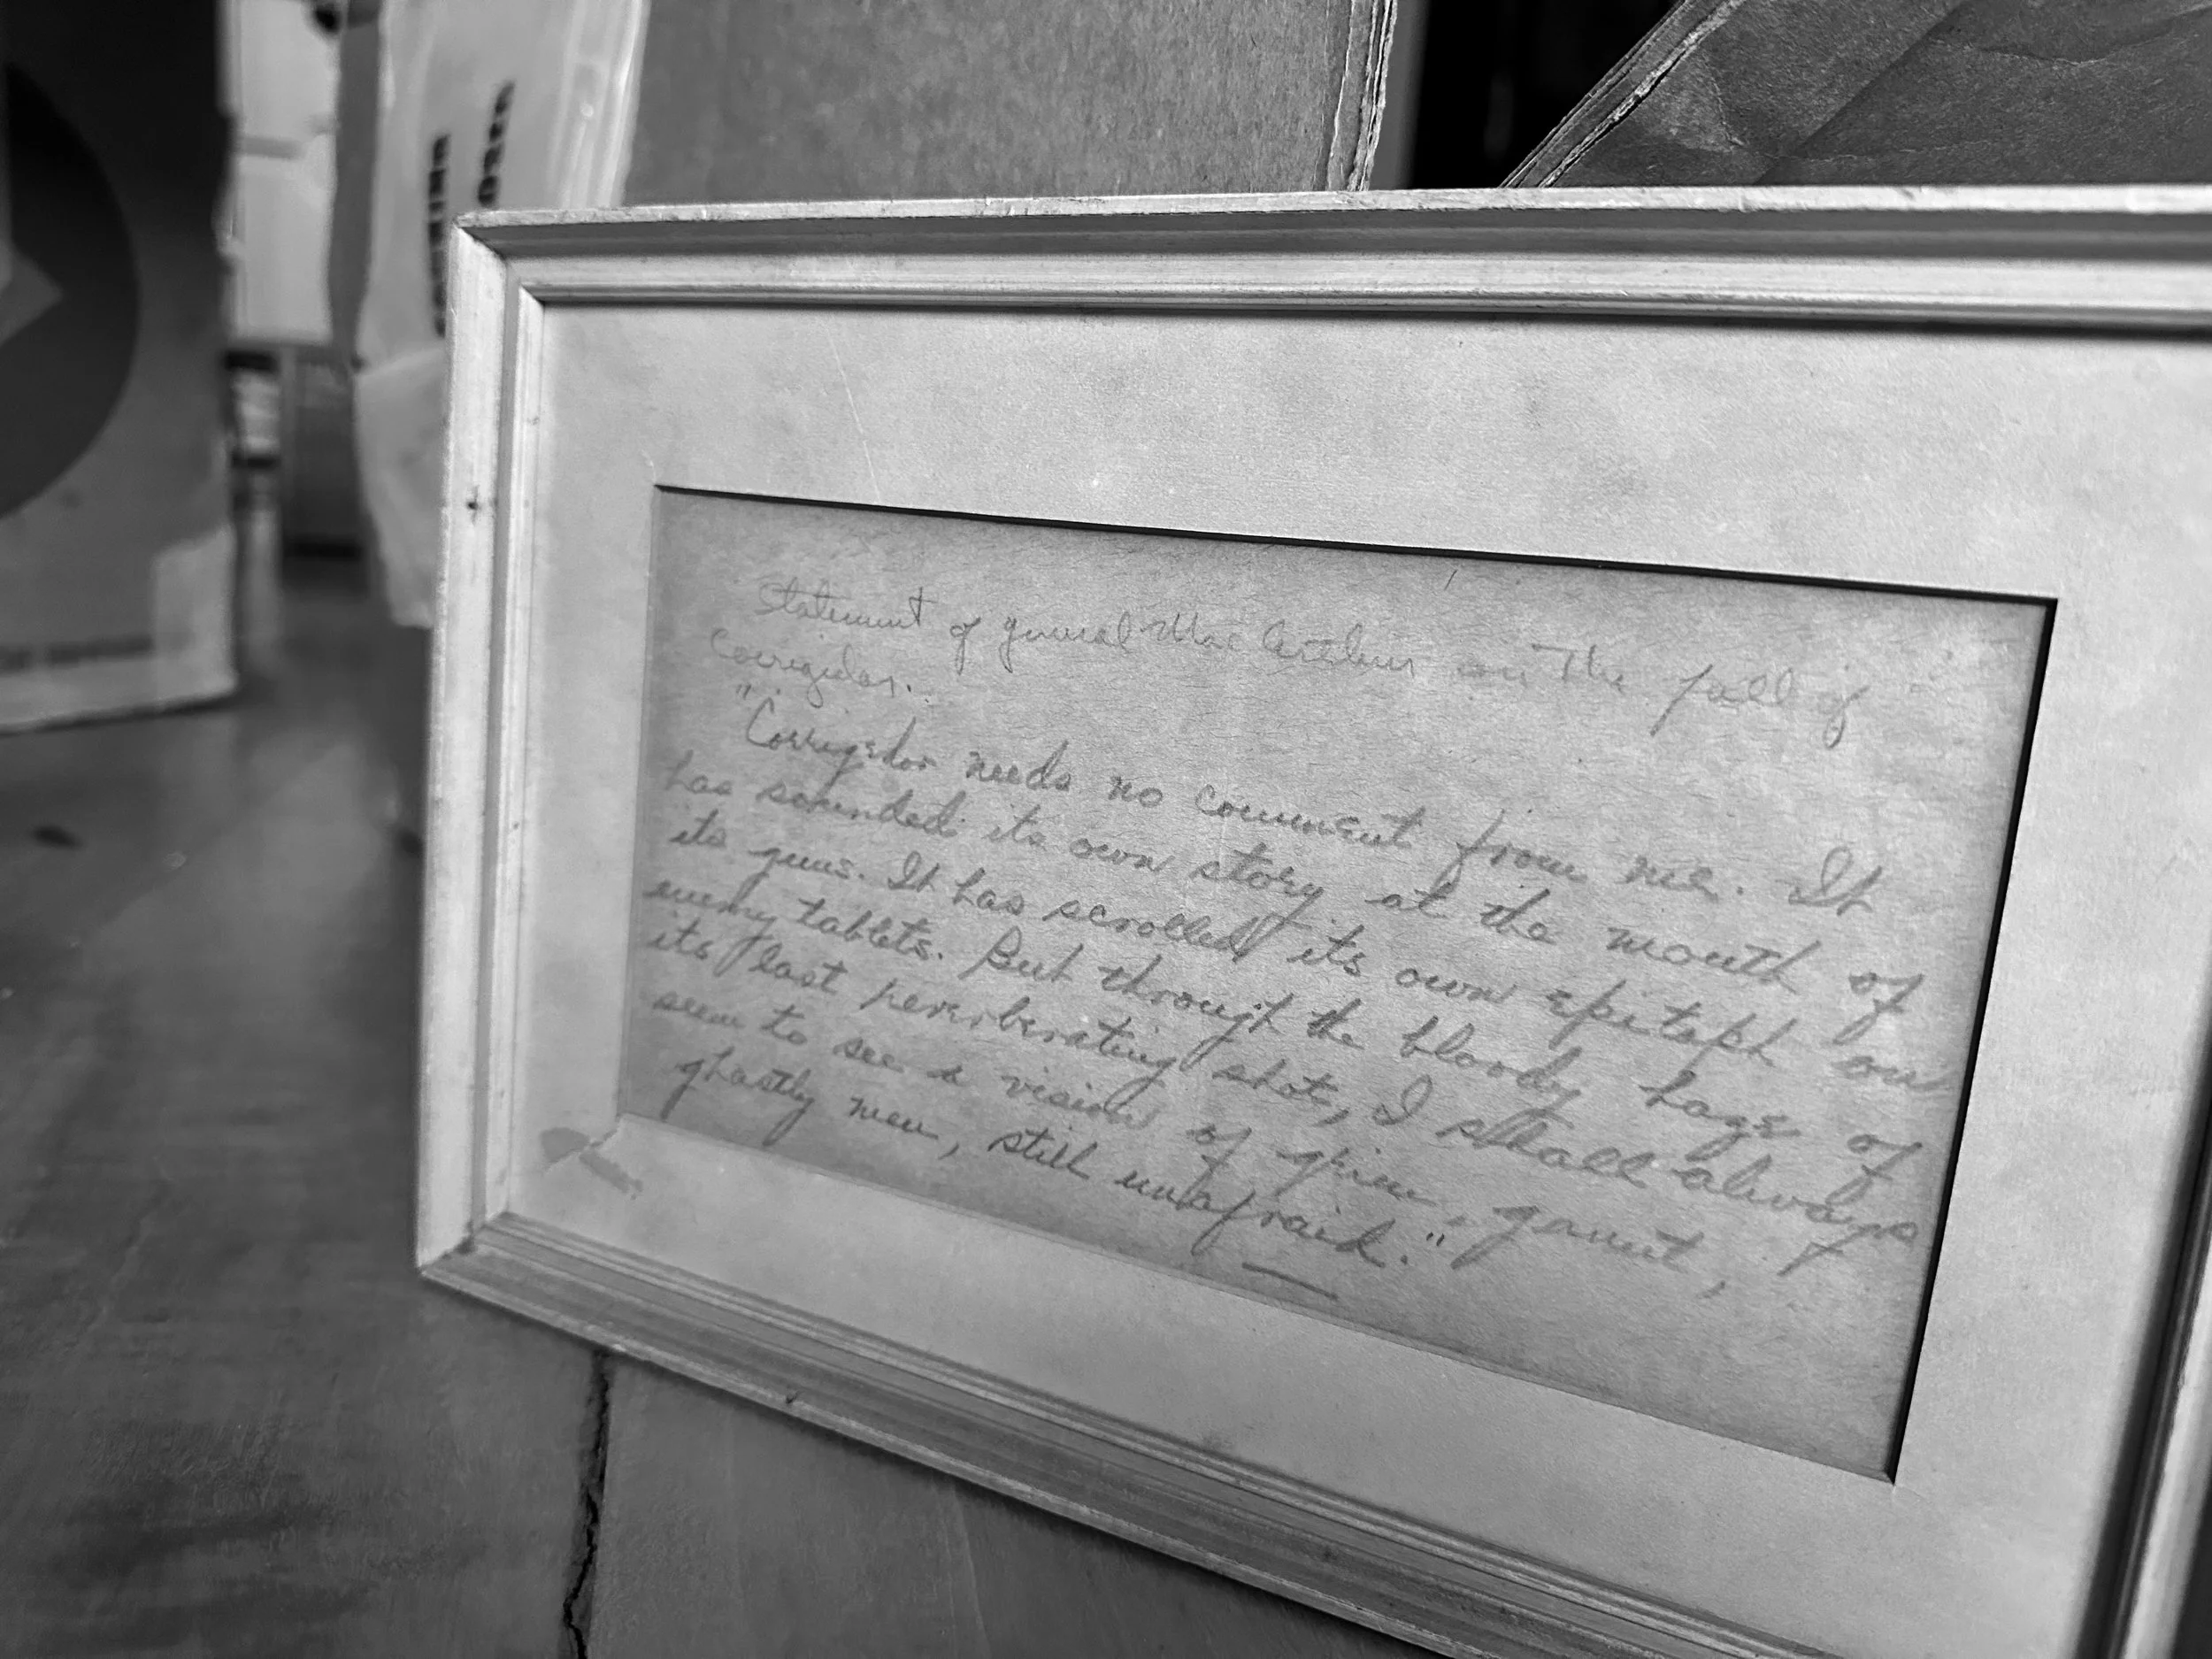 Statement of general MacArthur on The fall of
Corrigidor.
"Corrigidor needs no comment from me. It
has sounded its own story at the mouth of
its guns. It has scrolled its own epitaph on
enemy tablets. But through the bloody haze of
its last reverberating shot, I shall always
seem to see a vision of grim, gaunt,
ghastly men, still unafraid."